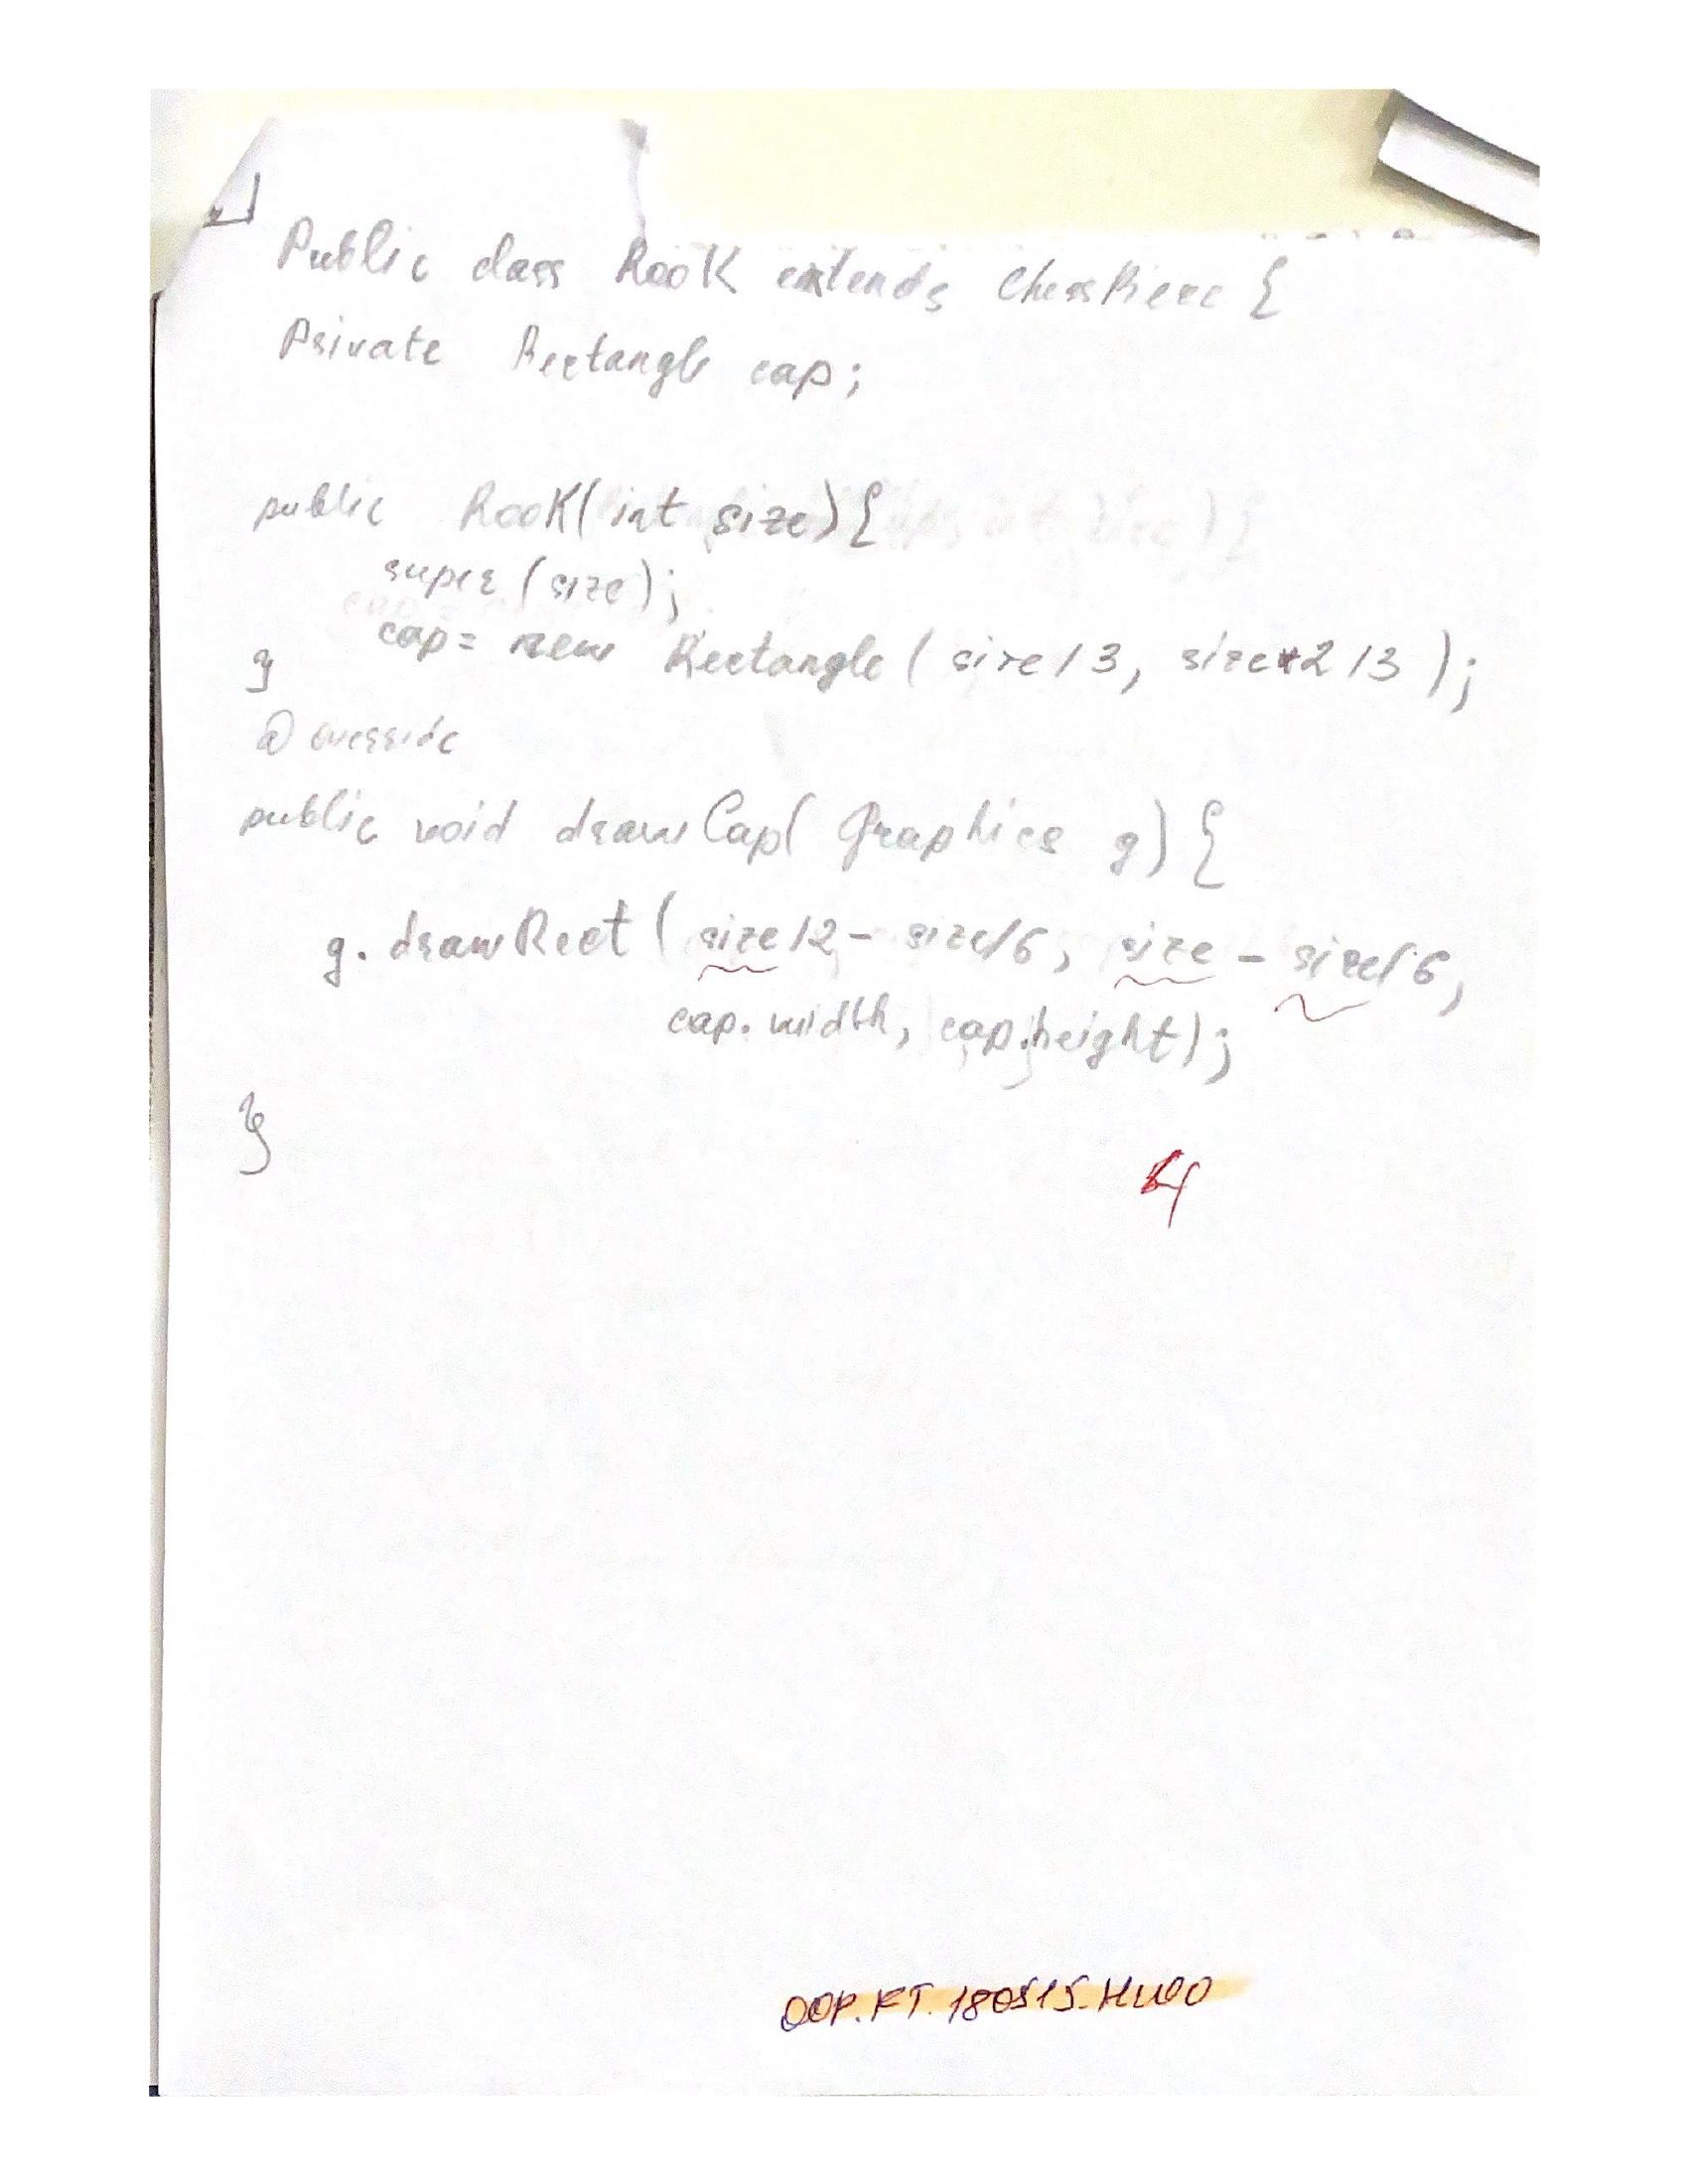 Public class Rook extends ChessPiece {
Private Rectangle cap;
public Rook(int size){
super (size);
cap = new Rectangle ( size/3, size*2/3 );
}
@ override
public void drawCap( Graphics g) {
g. drawRect ( size/2 - size/6, size - size/6,
cap. width, cap.height);
}
4
OOP.FT.180515.HU00